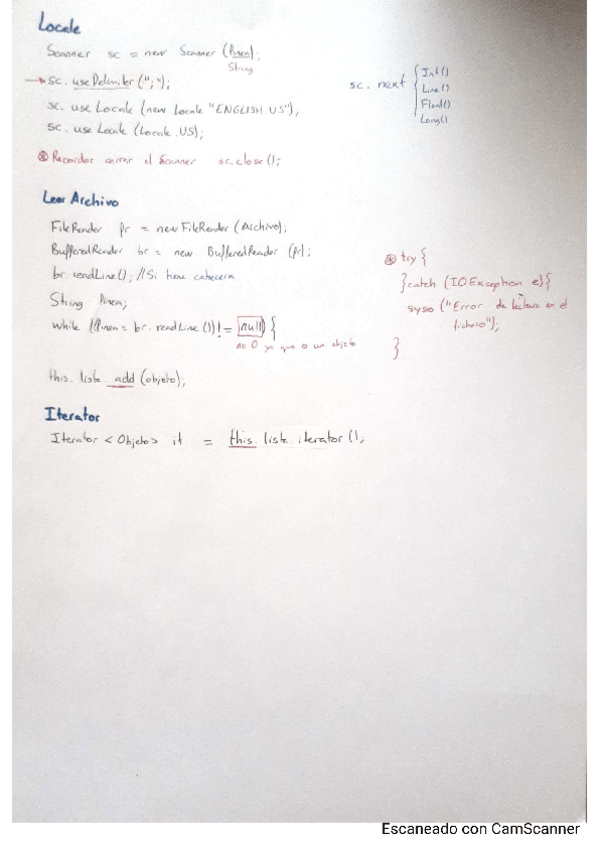 Locale
Scanner sc = new Scanner (linea);
String
→ sc. useDelimiter (";");
sc. use Locale (new Locale "ENGLISH US");
sc. use Locale (Locale.US);
sc. next { Int()
Line()
Float()
Long()
⊛ Recordar cerrar el Scanner sc.close();
Leer Archivo
FileReader fr = new FileReader (Archivo);
BufferedReader br = new BufferedReader (fr);
br. readLine(); // Si tiene cabecera
String linea;
while ((linea = br. readLine ()) != null) {
no 0 ya que a un objeto
this. lista. add (objeto);
⊛ try {
} catch (IOException e) {
syso ("Error de lectura en el
fichero");
}
Iterator
Iterator < Objeto > it = this. lista. iterator ();
Escaneado con CamScanner